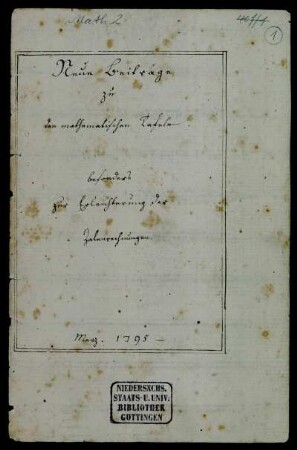 Math. 2
1
Neue Beiträge
zu
den mathematischen Tafeln
besonders
zur Erleichterung der
Zalenrechnungen.
1795
NIEDERSÄCHS.
STAATS- U. UNIV.
BIBLIOTHEK
GÖTTINGEN